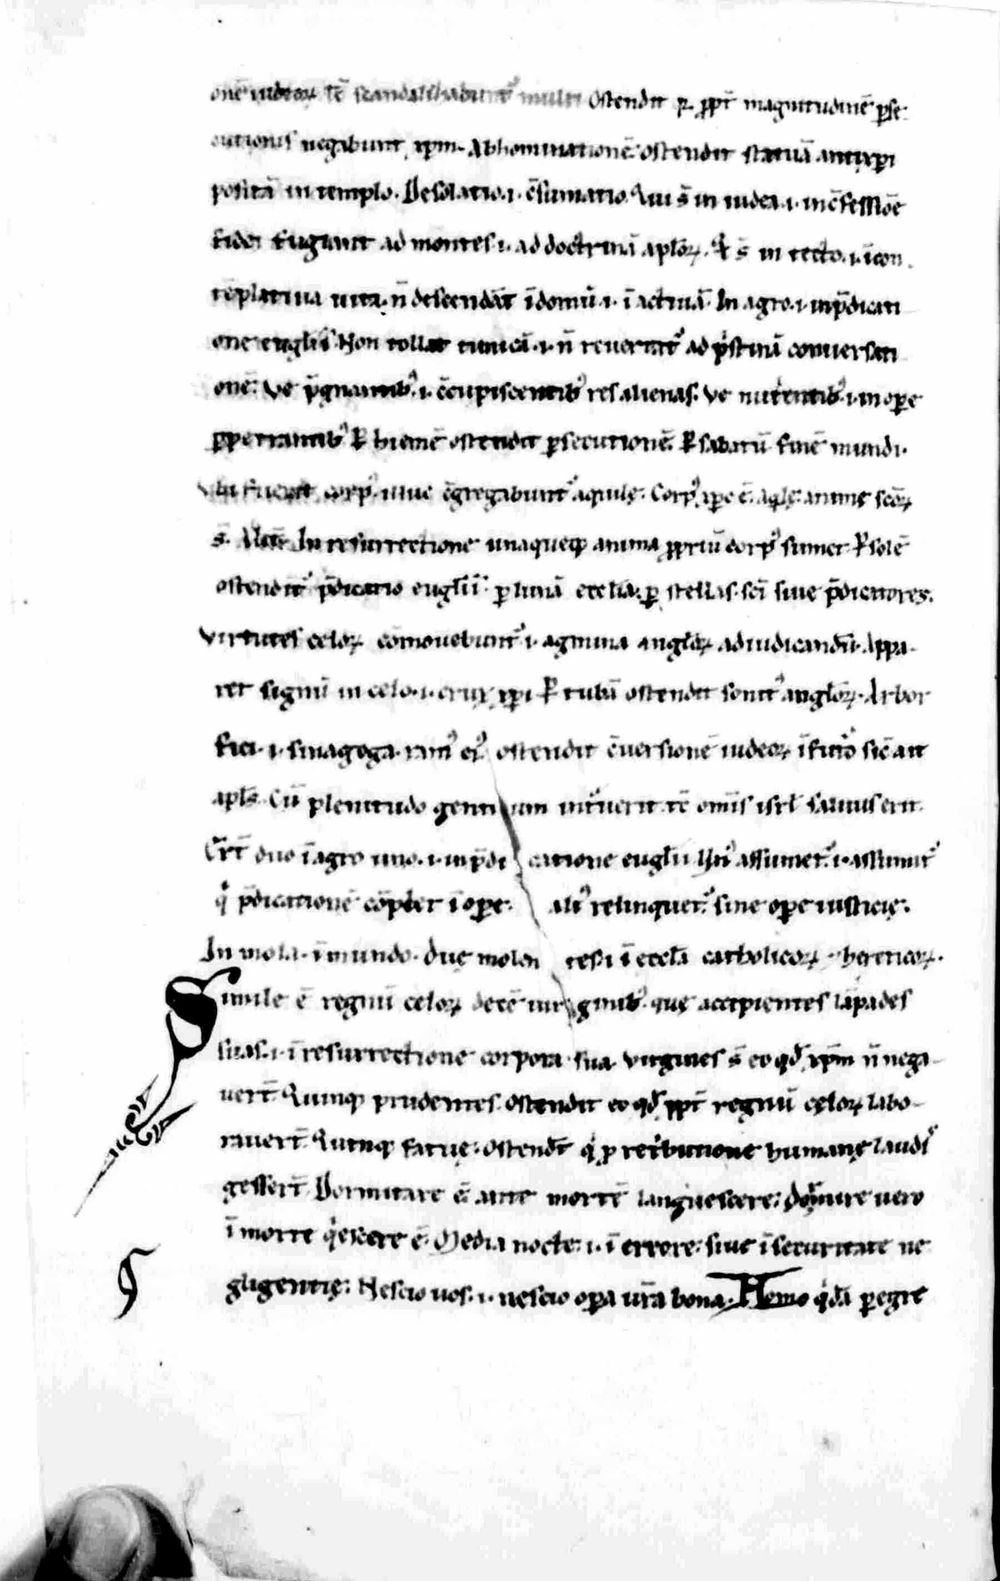 onē iudeoꝝ. Tē̄ scandalizabunt᷒ multi Ostendit ꝙ ꝓpt̄ magnitudinē ꝑse
cutionis negabunt xp̄m. Abhominationē ostendit statuā antixp̄i
positā in templo. Desolatio .i. c̄sumatio. Qui s̄ in iudea .i. in c̄fessiōe
fidei fugiant ad montes .i. ad doctrinā aploꝝ. Qͥ s̄ in tecto .i. ī con
tēplatiua uita. n̄ descendāt ī domū .i. ī actiuā. In agro .i. in p̄dicati
one eugl̄ii Non tollat tunicā .i. n̄ reuertat᷒ ad pͥstinā conuersati
onē. Ve p̄gnantib᷒ .i. c̄cupiscentib᷒ res alienas. Ve nutrientib᷒ .i. in oꝑe
ꝑpetrantib᷒ ꝑ hiemē ostendit ꝑsecutionē. ꝑ sabatū finē mundi.
Vbi fuerit corp᷒. illuc c̄gregabunt᷒ aquilę. Corp᷒ xp̄c ē. aqͥlę anime scōꝝ
s̄. Alit̄ In resurrectione unaqueqꝫ anima ꝓpriū corp᷒ sumet ꝑ solē
ostendit᷒ p̄dicatio eugl̄ii. ꝑ lunā eccl̄ia. ꝑ stellas. sc̄i siue p̄dicatores.
Virtutes celoꝝ cōmouebunt᷒ .i. agmina angl̄oꝝ ad iudicandū. Appa
ret signū in celo .i. crux xp̄i ꝑ tubā ostendit sonit᷒ angl̄oꝝ. Arbor
fici .i. sinagoga. ram᷒ ei᷒ ostendit c̄uersionē iudeoꝝ ī futͦro sic̄ ait
apl̄s. Cū plenitudo gentium intͣuerit. tc̄ omīs isrl̄ saluus erit.
Er̄t duo ī agro uno .i. in p̄dicatione eugl̄ii Vn᷒ assumet᷒ .i. assumit᷒
qͥ p̄dicationē cōplet ī oꝑe. ali᷒ relinquet᷒ sine oꝑe iusticię.
In mola. ī mundo. Duę molentes .i. ī eccl̄a catholicoꝝ hereticoꝝ.
Simile ē regnū celoꝝ decē uirginib᷒. quę accipientes lāpades
suas .i. ī resurrectione corpora sua. Virgines s̄ eo qd̄ xp̄m n̄ nega
uer̄t. Quinqꝫ prudentes. Ostendit eo qd̄ ꝓpt̄ regnū cęloꝝ labo
rauer̄t. Quinqꝫ fatuę. Ostend̄t qͥ ꝓ retͥbutione humanę laudis
gesser̄t. Dormitare ē ante mortē languescere. Dormire uero
ī morte qͥescere ē. Media nocte .i. ī errore. siue ī securitate ne
gligentię. Nescio uos .i. nescio oꝑa ur̄a bona. Homo qͥdā peregre